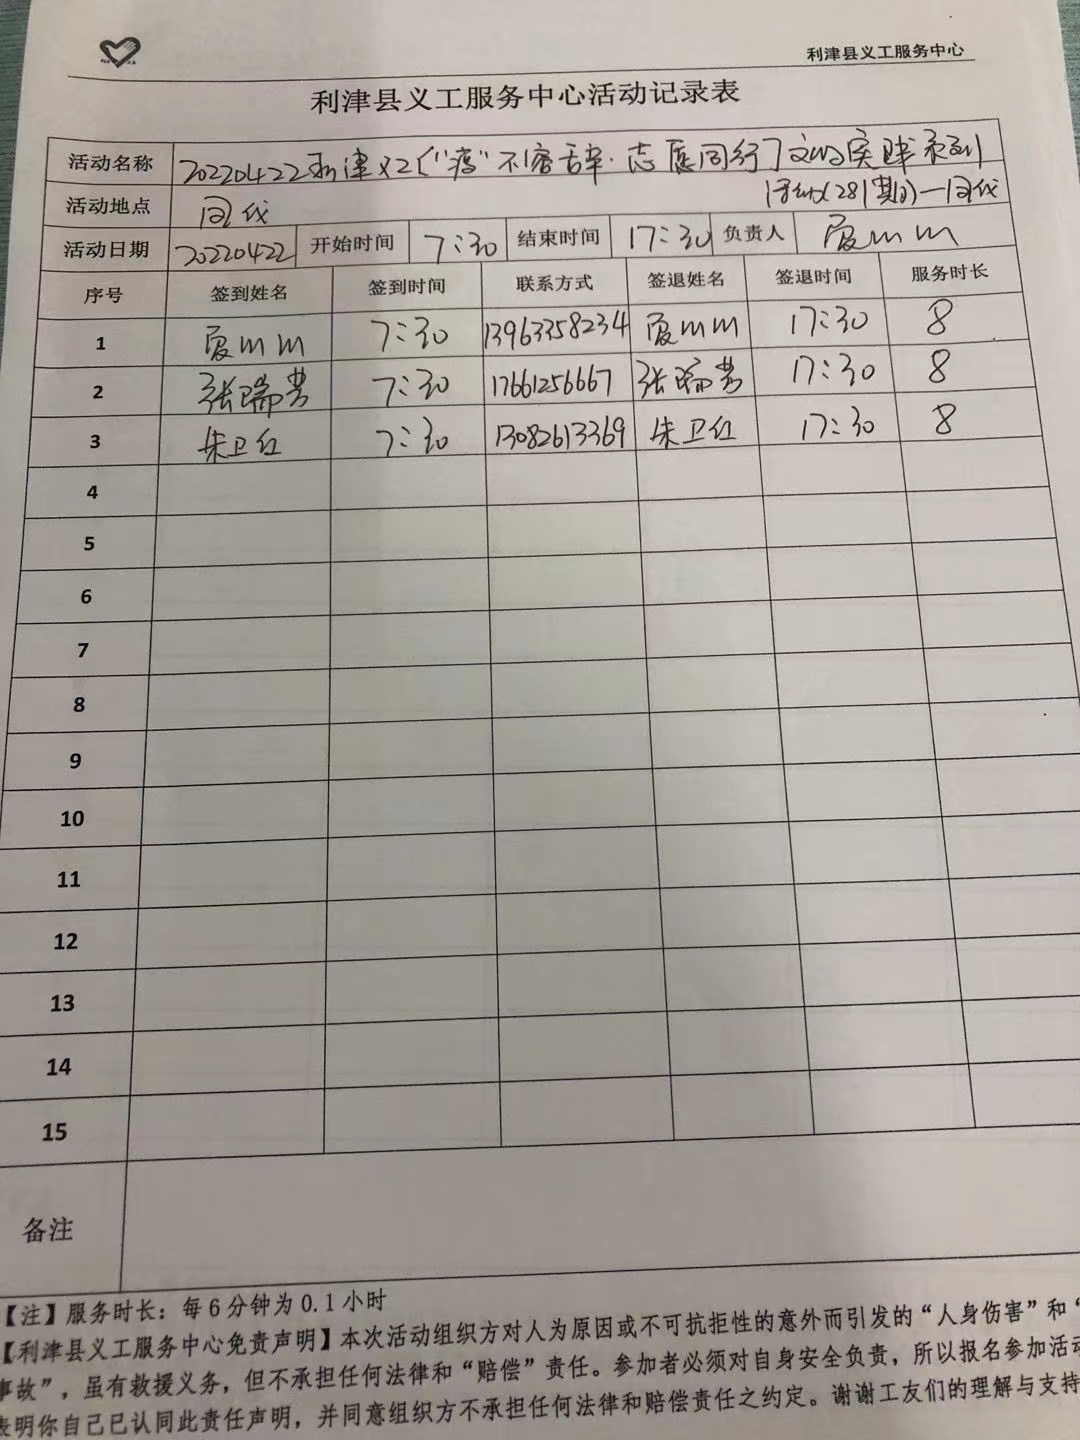 利津县义工服务中心
利津县义工服务中心活动记录表
活动名称 20220422利津义工〔“疫”不容辞·志愿同行〕文明实践系列
活动(281期)—同伐
活动地点 同伐
活动日期 20220422 开始时间 7:30 结束时间 17:30 负责人
序号 签到姓名 签到时间 联系方式 签退姓名 签退时间 服务时长
1 7:30 13963358234 17:30 8
2 张瑞芳 7:30 17661256667 张瑞芳 17:30 8
3 朱卫红 7:30 13082613369 朱卫红 17:30 8
4
5
6
7
8
9
10
11
12
13
14
15
备注
【注】服务时长：每6分钟为0.1小时
【利津县义工服务中心免责声明】本次活动组织方对人为原因或不可抗拒性的意外而引发的“人身伤害”和“
事故”，虽有救援义务，但不承担任何法律和“赔偿”责任。参加者必须对自身安全负责，所以报名参加活动
表明你自己已认同此责任声明，并同意组织方不承担任何法律和赔偿责任之约定。谢谢工友们的理解与支持